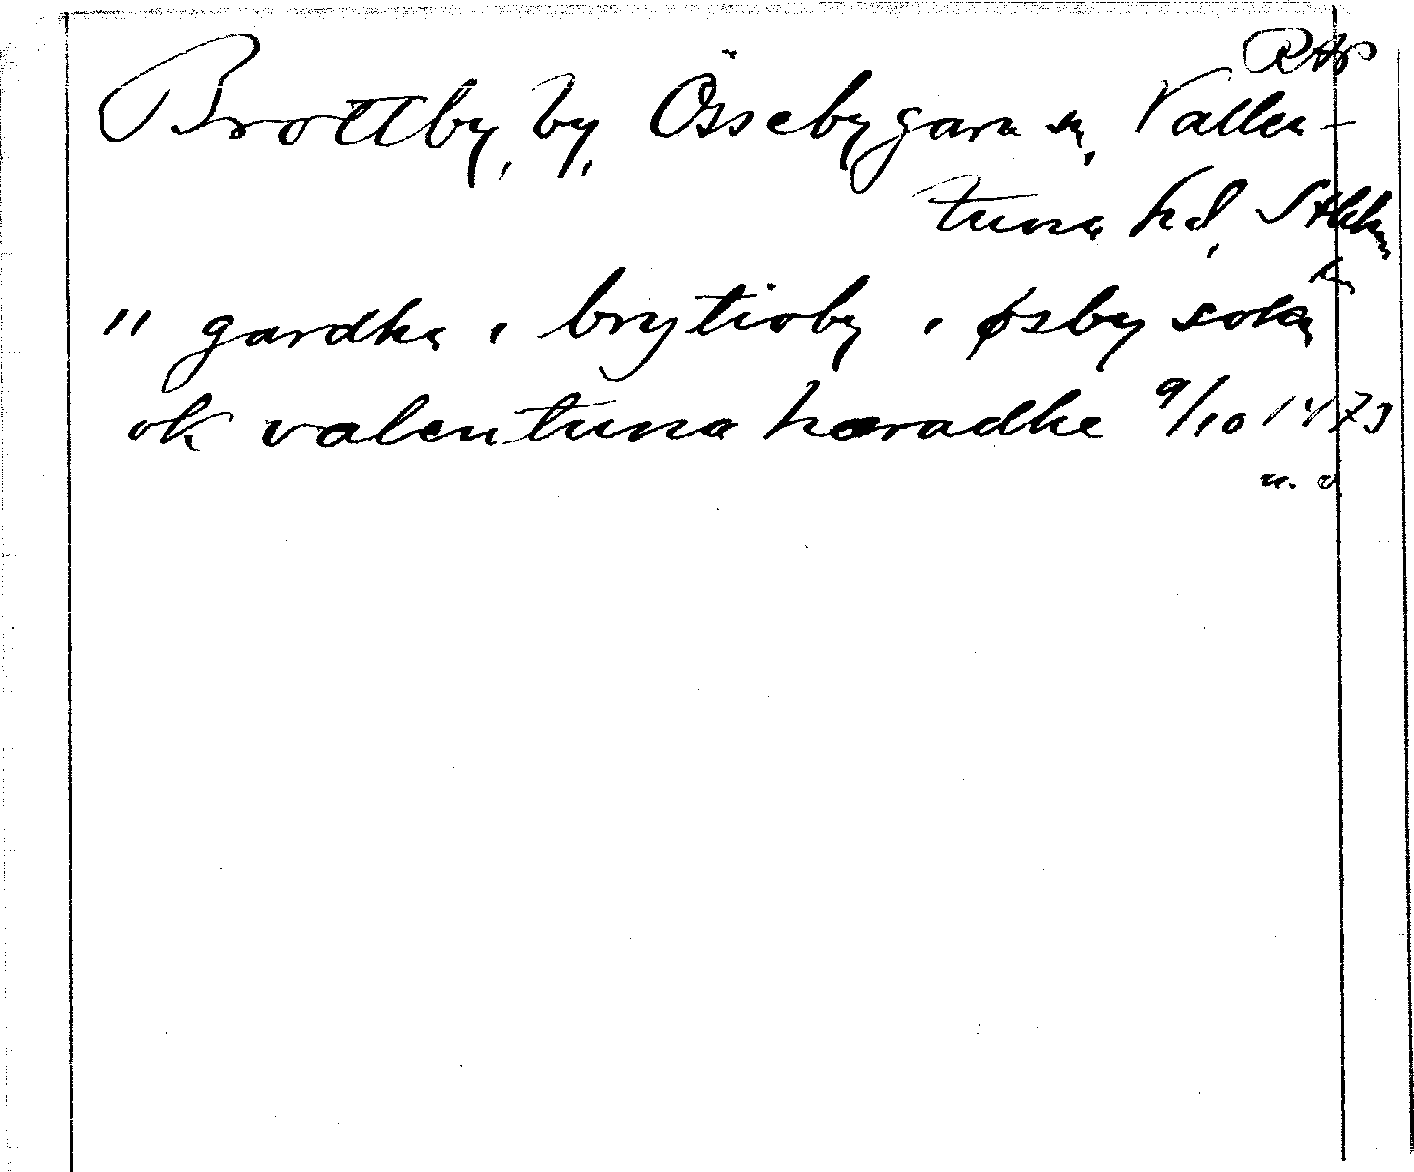 RAp
Brottby, by, Össebygarn sn, Vallen-
tuna hd, Sthlms
ln
" gardha i brytioby i øsby sokn
ok valentuna hæradhe 9/10 1473
u. o